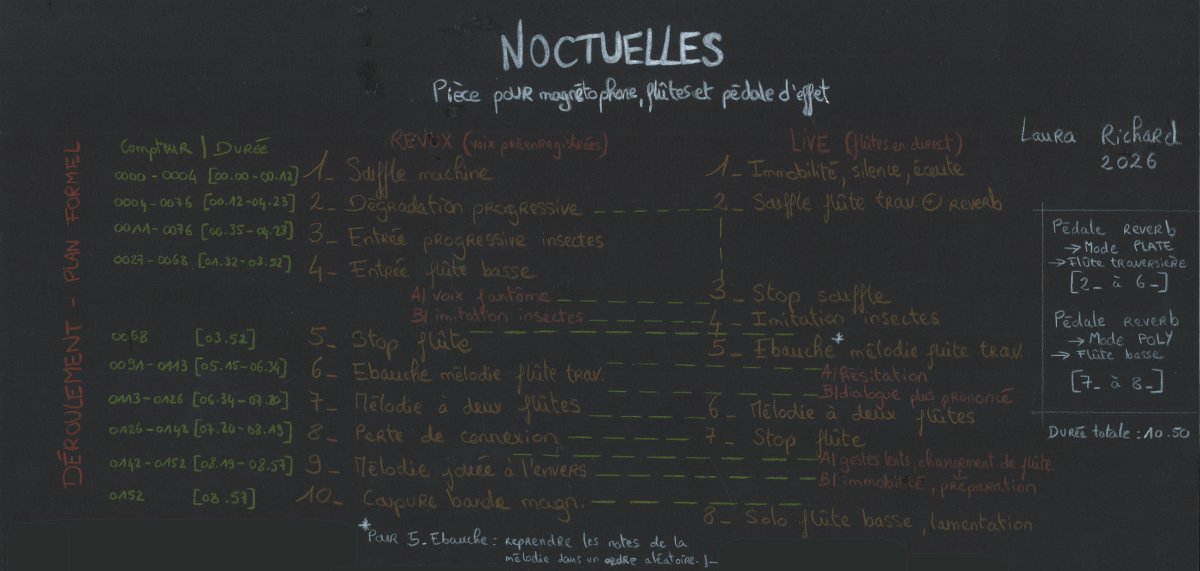 NOCTUELLES
Pièce pour magnétophone, flûtes et pédale d'effet
Laura Richard
2026
DÉROULEMENT - PLAN FORMEL
Compteur | DURÉE
0000 - 0004 [00.00 - 00.12]
0004 - 0076 [00.12 - 04.23]
0011 - 0076 [00.35 - 04.23]
0027 - 0068 [01.32 - 03.52]
0068 [03.52]
0091 - 0113 [05.15 - 06.34]
0113 - 0126 [06.34 - 07.20]
0126 - 0142 [07.20 - 08.19]
0142 - 0152 [08.19 - 08.57]
0152 [08.57]
REVOX (voix préenregistrées)
1_ Souffle machine
2_ Dégradation progressive
3_ Entrée progressive insectes
4_ Entrée flûte basse
A| Voix fantôme
B| imitation insectes
5_ Stop flûte
6_ Ebauche mélodie flûte trav.
7_ Mélodie à deux flûtes
8_ Perte de connexion
9_ Mélodie jouée à l'envers
10_ Coupure bande magn.
LIVE (flûtes en direct)
1_ Immobilité, silence, écoute
2_ Souffle flûte trav. + REVERB
3_ Stop souffle
4_ Imitation insectes
5_ Ebauche* mélodie flûte trav.
A| Hésitation
B| dialogue plus prononcé
6_ Mélodie à deux flûtes
7_ Stop flûte
A| gestes lents, changement de flûte
B| immobilité, préparation
8_ Solo flûte basse, lamentation
Pédale REVERB
→ Mode PLATE
→ Flûte TRAVERSIÈRE
[2_ à 6_]
Pédale REVERB
→ Mode POLY
→ Flûte basse
[7_ à 8_]
DURÉE totale : 10.50
*Pour 5_Ebauche : reprendre les notes de la
mélodie dans un ordre aléatoire.